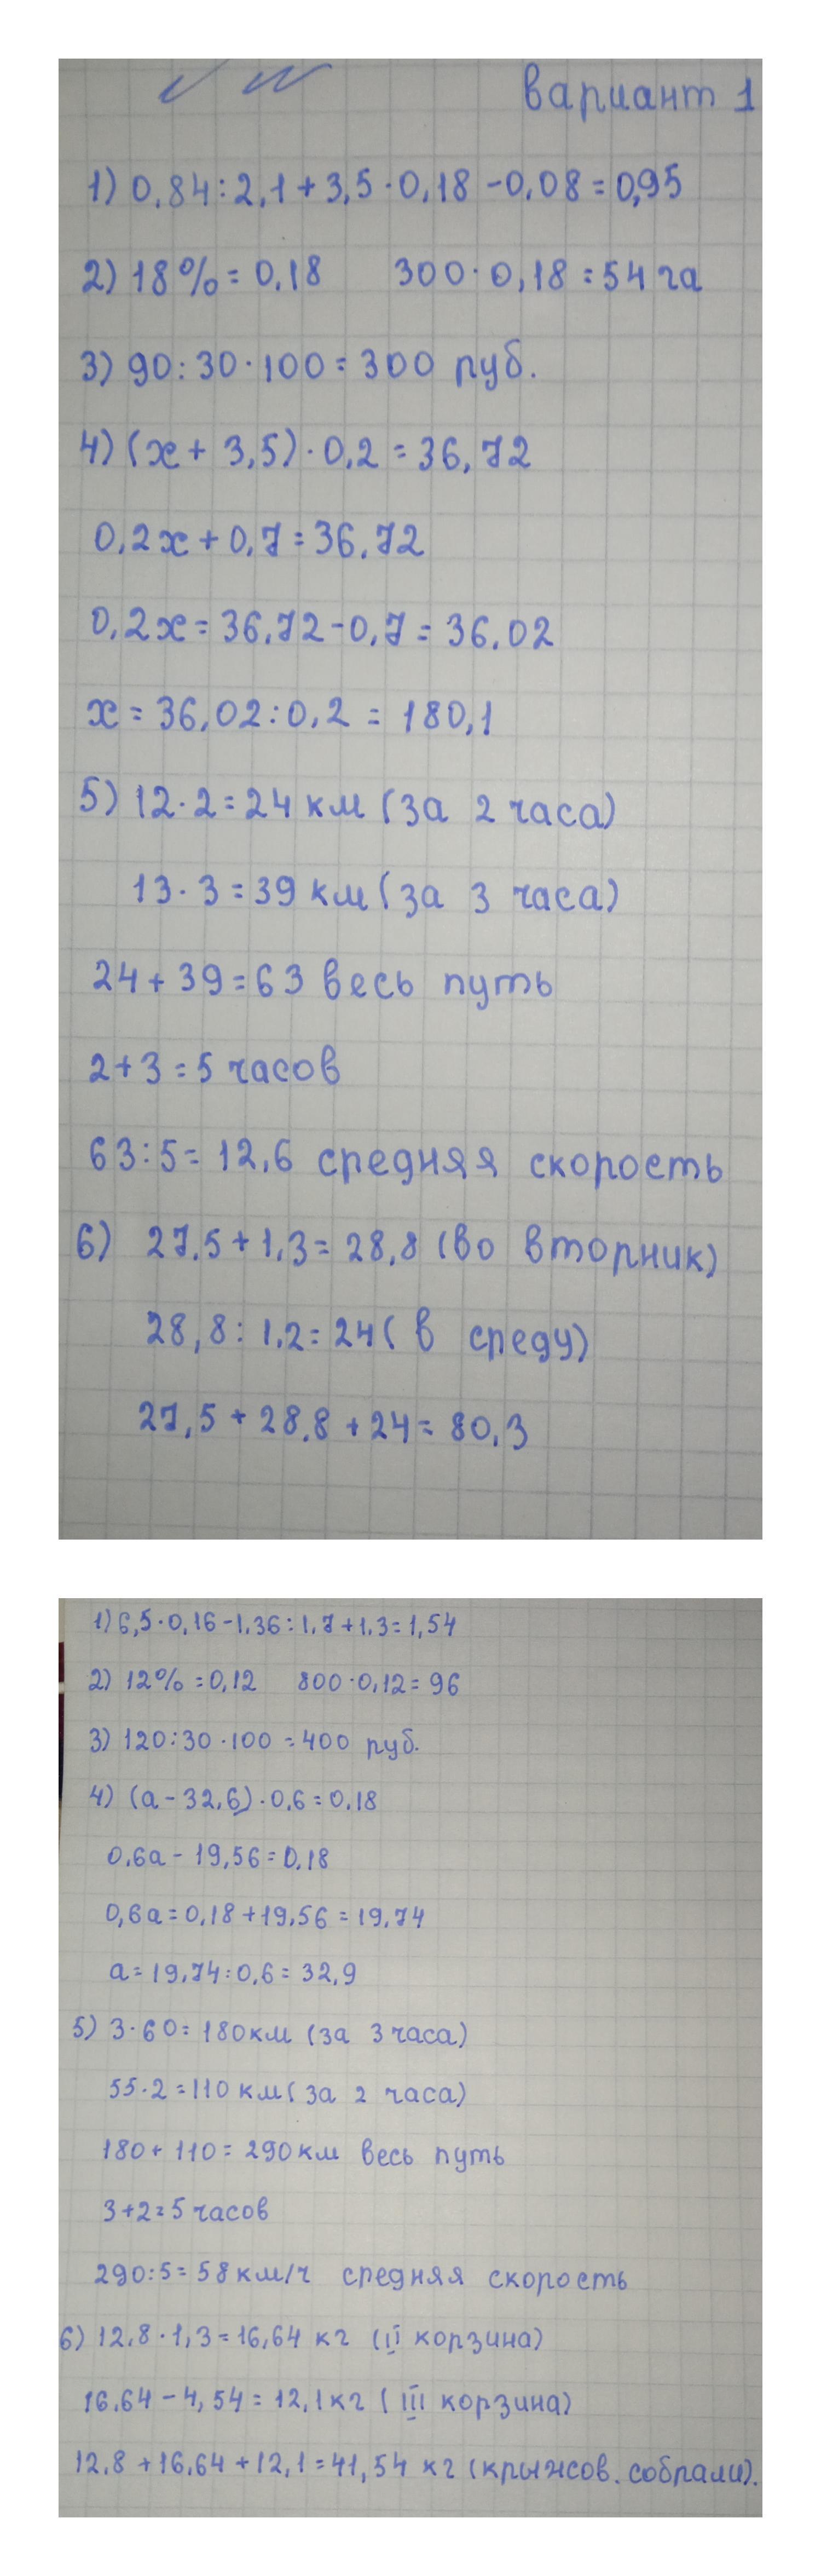 вариант 1
1) 0,84:2,1+3,5·0,18-0,08=0,95
2) 18%=0,18 300·0,18=54 га
3) 90:30·100=300 руб.
4) (x+3,5)·0,2=36,72
0,2x+0,7=36,72
0,2x=36,72-0,7=36,02
x=36,02:0,2=180,1
5) 12·2=24 км (за 2 часа)
13·3=39 км (за 3 часа)
24+39=63 весь путь
2+3=5 часов
63:5=12,6 средняя скорость
6) 27,5+1,3=28,8 (во вторник)
28,8:1,2=24 (в среду)
27,5+28,8+24=80,3
1) 6,5·0,16-1,36:1,7+1,3=1,54
2) 12%=0,12 800·0,12=96
3) 120:30·100=400 руб.
4) (a-32,6)·0,6=0,18
0,6a-19,56=0,18
0,6a=0,18+19,56=19,74
a=19,74:0,6=32,9
5) 3·60=180км (за 3 часа)
55·2=110 км (за 2 часа)
180+110=290км весь путь
3+2=5 часов
290:5=58км/ч средняя скорость
6) 12,8·1,3=16,64 кг (II корзина)
16,64-4,54=12,1кг (III корзина)
12,8+16,64+12,1=41,54 кг (крыжов. собрали).